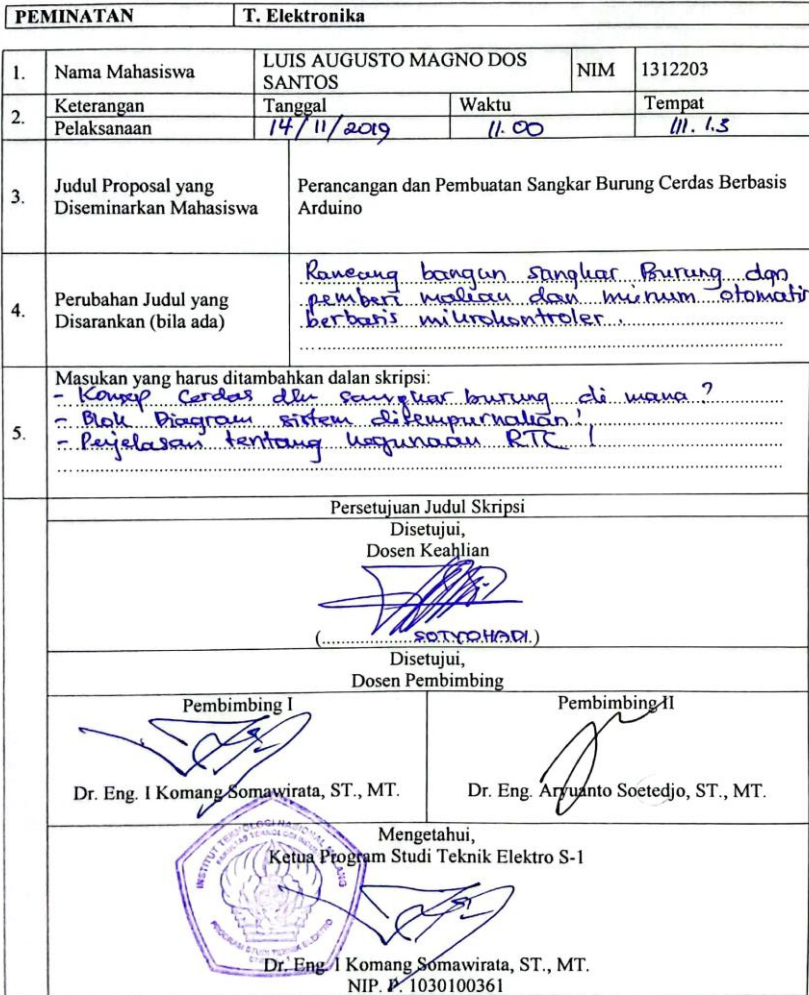 PEMINATAN T. Elektronika
1. Nama Mahasiswa LUIS AUGUSTO MAGNO DOS SANTOS NIM 1312203
2. Keterangan Pelaksanaan Tanggal Waktu Tempat
14/11/2019 11.00 III. 1.3
3. Judul Proposal yang Diseminarkan Mahasiswa
Perancangan dan Pembuatan Sangkar Burung Cerdas Berbasis
Arduino
4. Perubahan Judul yang Disarankan (bila ada)
Rancang bangun sangkar Burung dgn
pemberi makan dan minum otomatis
berbasis mikrokontroler.
5. Masukan yang harus ditambahkan dalan skripsi:
- Konsep Cerdas dlm sangkar burung di mana?
- Blok Diagram sistem disempurnakan!
- Penjelasan tentang kegunaan RTC!
Persetujuan Judul Skripsi
Disetujui,
Dosen Keahlian
(SOTYOHADI.)
Disetujui,
Dosen Pembimbing
Pembimbing I
Dr. Eng. I Komang Somawirata, ST., MT.
Pembimbing II
Dr. Eng. Aryuanto Soetedjo, ST., MT.
Mengetahui,
Ketua Program Studi Teknik Elektro S-1
INSTITUT TEKNOLOGI NASIONAL MALANG
FAKULTAS TEKNOLOGI INDUSTRI
PROGRAM STUDI TEKNIK ELEKTRO
Dr. Eng. I Komang Somawirata, ST., MT.
NIP. P. 1030100361